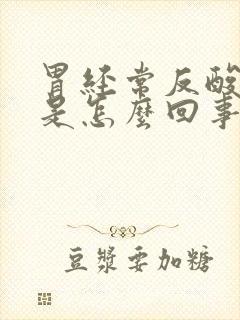 胃經常反酸
是怎麼回事
豆漿要加糖